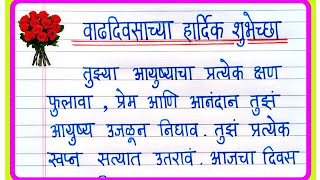 वाढदिवसाच्या हार्दिक शुभेच्छा
तुझ्या आयुष्याचा प्रत्येक क्षण
फुलावा , प्रेम आणि आनंदान तुझं
आयुष्य उजळून निघाव . तुझं प्रत्येक
स्वप्न सत्यात उतरावं . आजचा दिवस